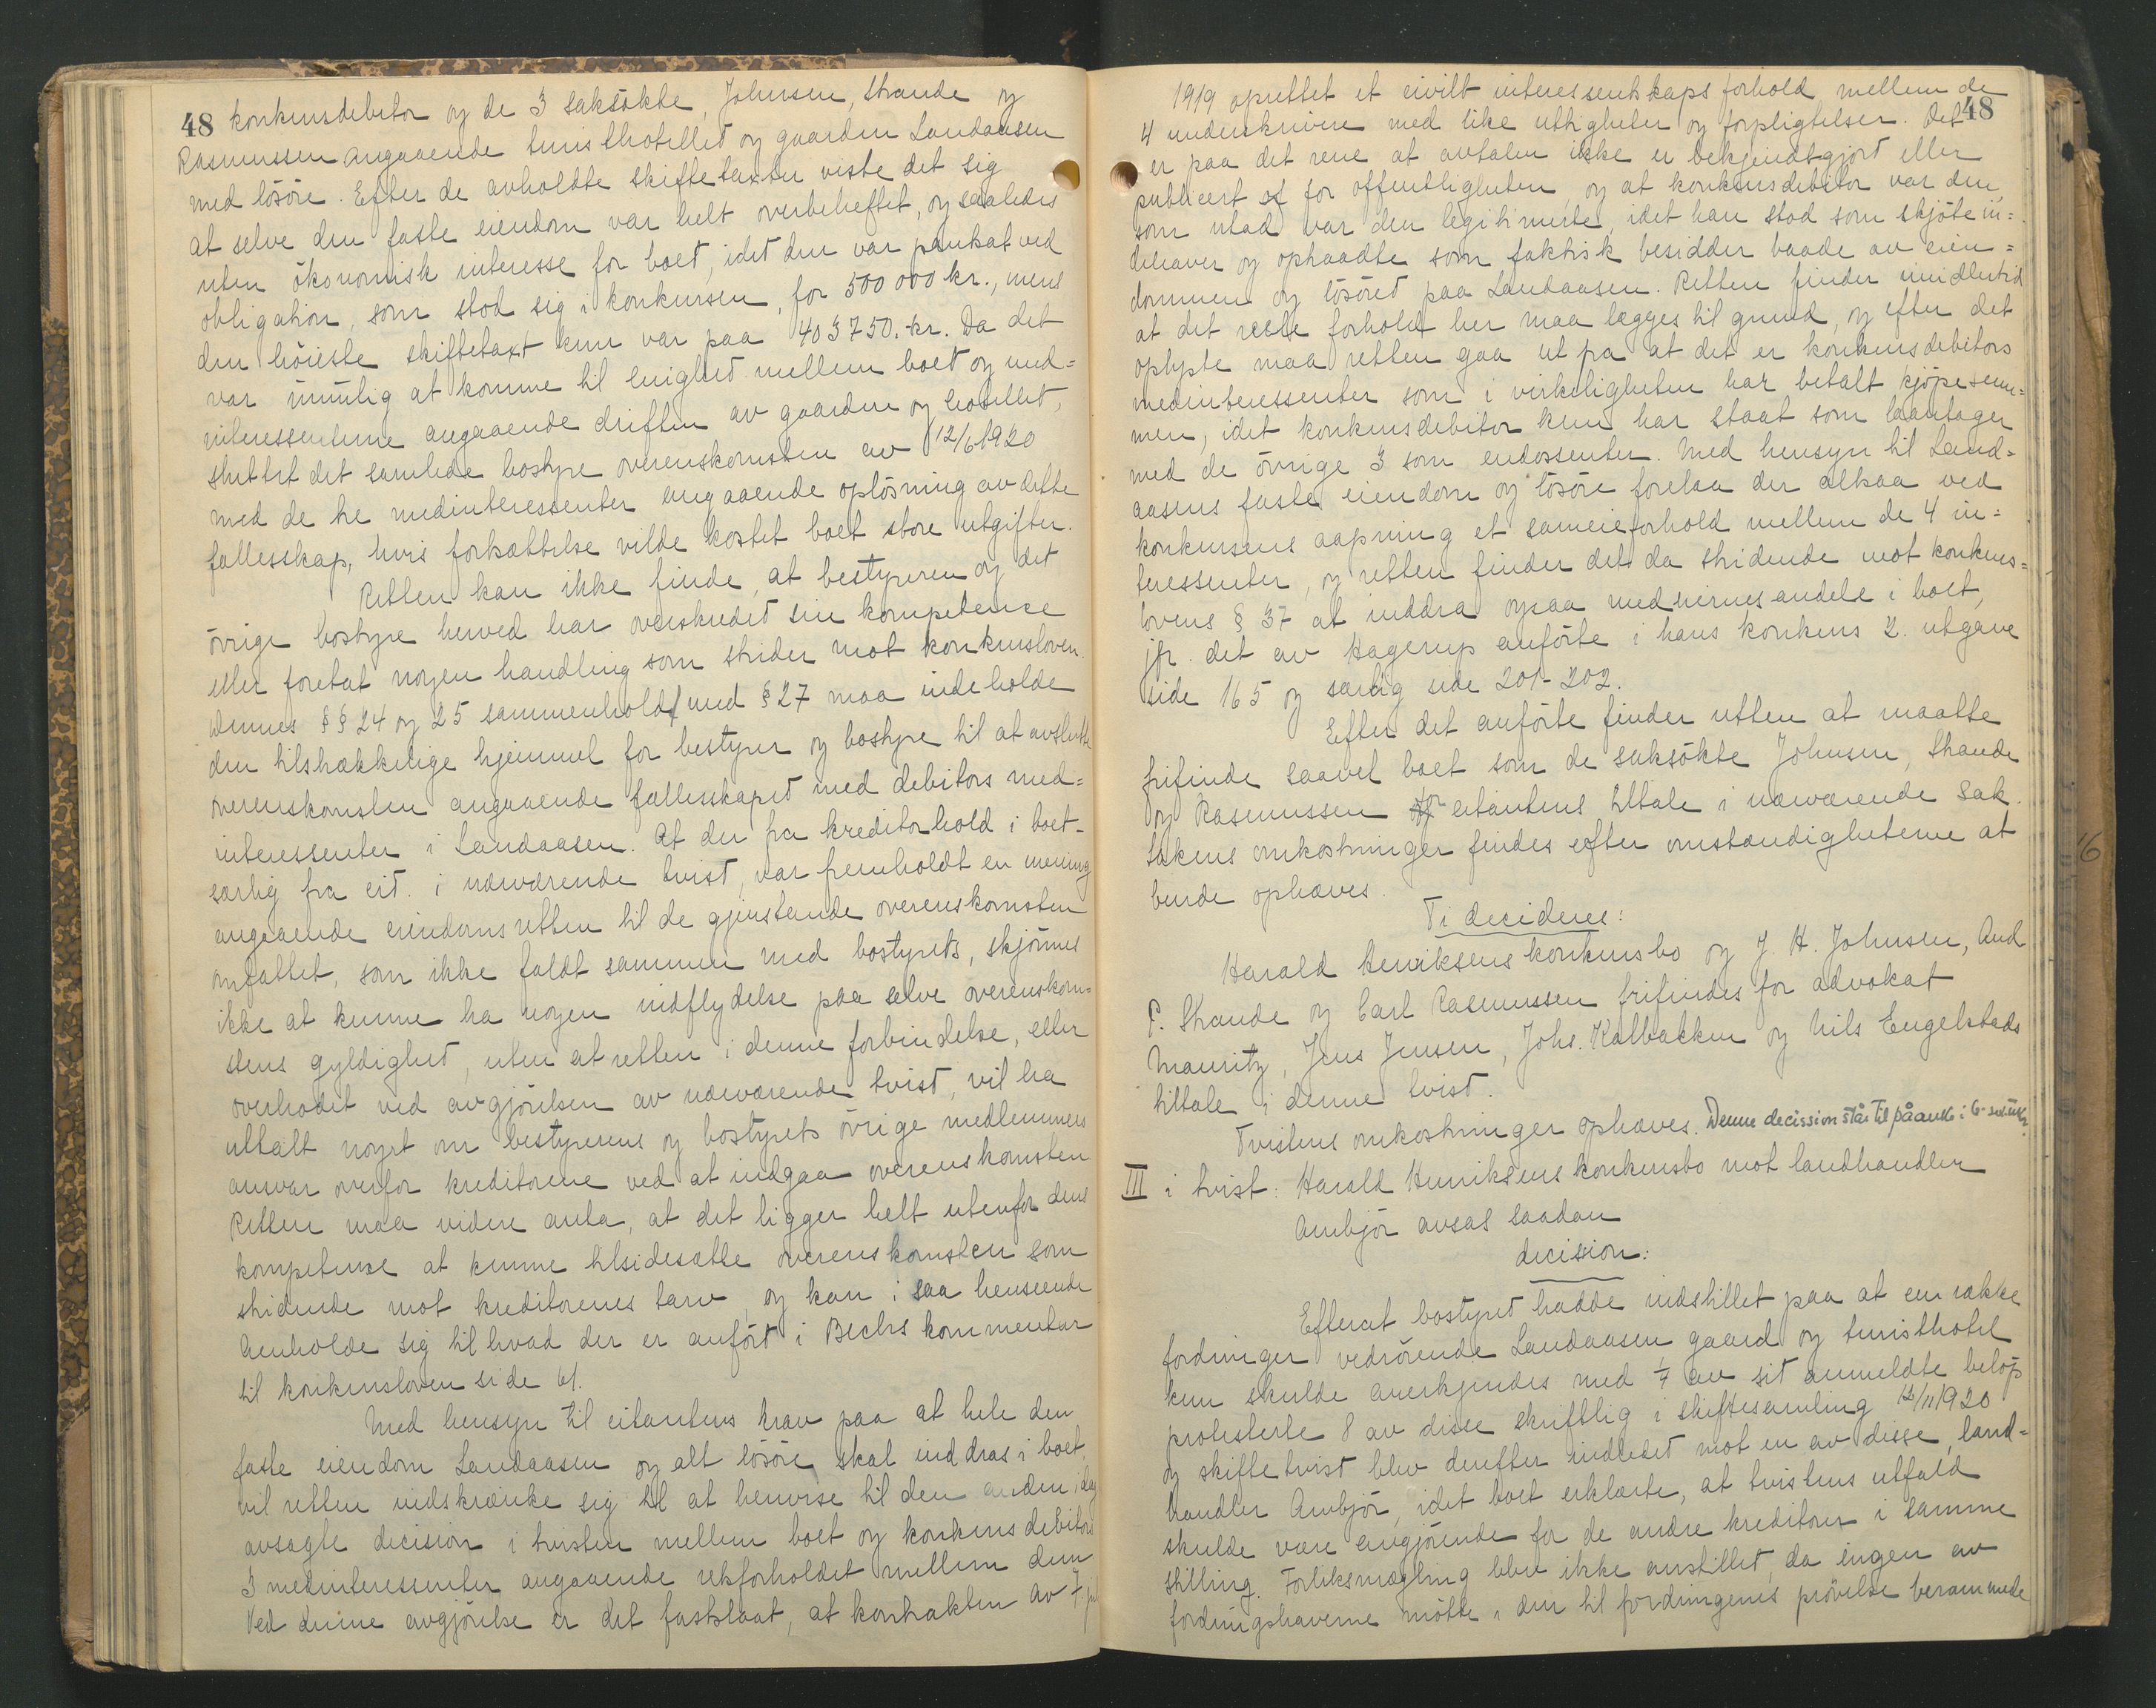 48 konkursdebitor og de 3 saksökte, Johnsen, Strande og
Rasmussen angaaende turisthotellet og gaarden Landaasen
med lösöre. Efter de avholdte skiftetakster viste det sig
at selve den faste eiendom var helt overbeheftet, og saaledes
uten ökonomisk interesse for boet, idet den var pantsat ved
obligation, som stod sig i konkursen, for 500 000 kr., mens
den höieste skiftetaxt kun var paa 403750.-kr. Da det
var umulig at komme til enighet mellem boet og med=
interessenterne angaaende driften av gaarden og hotellet,
sluttet det samlede bostyre overenskomsten av 12/6 1920
med de tre medinteressenter angaaende oplösning av dette
fællesskap, hvis fortsættelse vilde kostet boet store utgifter.
Retten kan ikke finde, at bestyreren og det
övrige bostyre herved har overskredet sin kompetence
eller foretat nogen handling som strider mot konkursloven.
Dennes §§ 24 og 25 sammenhold med § 27 maa indeholde
den tilstrækkelige hjemmel for bestyrer og bostyre til at avslutte
overenskomsten angaaende fællesskapet med debitors med=
interessenter i Landaasen. At der fra kreditorhold i boet -
særlig fra cit. i nærværende tvist, var fremholdt en mening
angaaende eiendomsretten til de gjenstande overenskomsten
omfattet, som ikke faldt sammen med bostyrets, skjönnes
ikke at kunne ha nogen indflydelse paa selve overenskom=
stens gyldighet, uten at retten i denne forbindelse, eller
overhodet ved avgjörelsen av nærværende tvist, vil ha
uttalt noget om bestyrerens og bostyrets övrige medlemmers
ansvar overfor kreditorene ved at indgaa overenskomsten
Retten maa videre anta, at det ligger helt utenfor dens
kompetense at kunne tilsidesætte overenskomsten som
stridende mot kreditorenes tarv, og kan i saa henseende
henholde sig til hvad der er anfört i Bechs kommentar
til konkursloven side 61.
Med hensyn til citantens krav paa at hele den
faste eiendom Landaasen og alt lösöre skal inddras i boet,
vil retten indskrænke sig til at henvise til den anden idag
avsagte decision i tvisten mellem boet og konkursdebitors
3 medinteressenter angaaende retsforholdet mellem dem
Ved denne avgjörelse er det fastslaat, at kontrakten av 7. juli
48
1919 oprettet et civilt interessentskapsforhold mellem de
4 underskrivere med like rettigheter og forpligtelser. Det
er paa det rene at avtalen ikke er bekjendtgjort eller
publicert for offentligheten, og at konkursdebitor var den
som utad var den legitimerte, idet han stod som skjöte in=
dehaver og ophaadte som faktisk besidder baade av eien=
dommen og lösöret paa Landaasen. Retten finder imidlertid
at det reele forhold her maa lægges til grund, og efter det
oplyste maa retten gaa ut fra at det er konkursdebitors
medinteressenter som i virkeligheten har betalt kjöpesum=
men, idet konkursdebitor kun har staat som laantager
med de övrige 3 som endossenter. Med hensyn til Land=
aasens faste eiendom og lösöre forelaa der altsaa ved
konkursens aapning et sameieforhold mellem de 4 in=
teressenter, og retten finder det da stridende mot konkurs=
lovens § 37 at inddra ogsaa medeiernes andele i boet,
jfr. det av Hagerup anförte i hans konkurs 2. utgave
side 165 og særlig side 201-202.
Efter det anförte finder retten at maatte
frifinde saavel boet som de saksökte Johnsen, Strande
og Rasmussen for citantens tiltale i nærværende sak.
Sakens omkostninger findes efter omstændigheterne at
burde ophæves.
Ti decideres:
Harald Henriksens konkursbo og J. H. Johnsen, And
P. Strande og Carl Rasmussen frifindes for advokat
Mauritz, Jens Jensen, Johs. Kalbakken og Nils Engelstads
tiltale i denne tvist.
Tvistens omkostninger ophæves. Denne decission står til påanke i 6 uker.
III i tvist: Harald Henriksens konkursbo mot landhandler
Ambjör avsas saadan
decision:
Efterat bostyret hadde indstillet paa at en række
fordringer vedrörende Landaasen gaard og turisthotel
kun skulde anerkjendes med 1/4 av sit anmeldte belöp
protesterte 8 av disse skriftlig i skiftesamling 12/11 1920
og skiftetvist blev derefter indledet mot en av disse, land=
handler Ambjör, idet boet erklærte, at tvistens utfald
skulde være avgjörende for de andre kreditorer i samme
stilling. Forliksmægling blev ikke anstillet, da ingen av
fordringshaverne mötte i den til fordringenes prövelse berammede
16